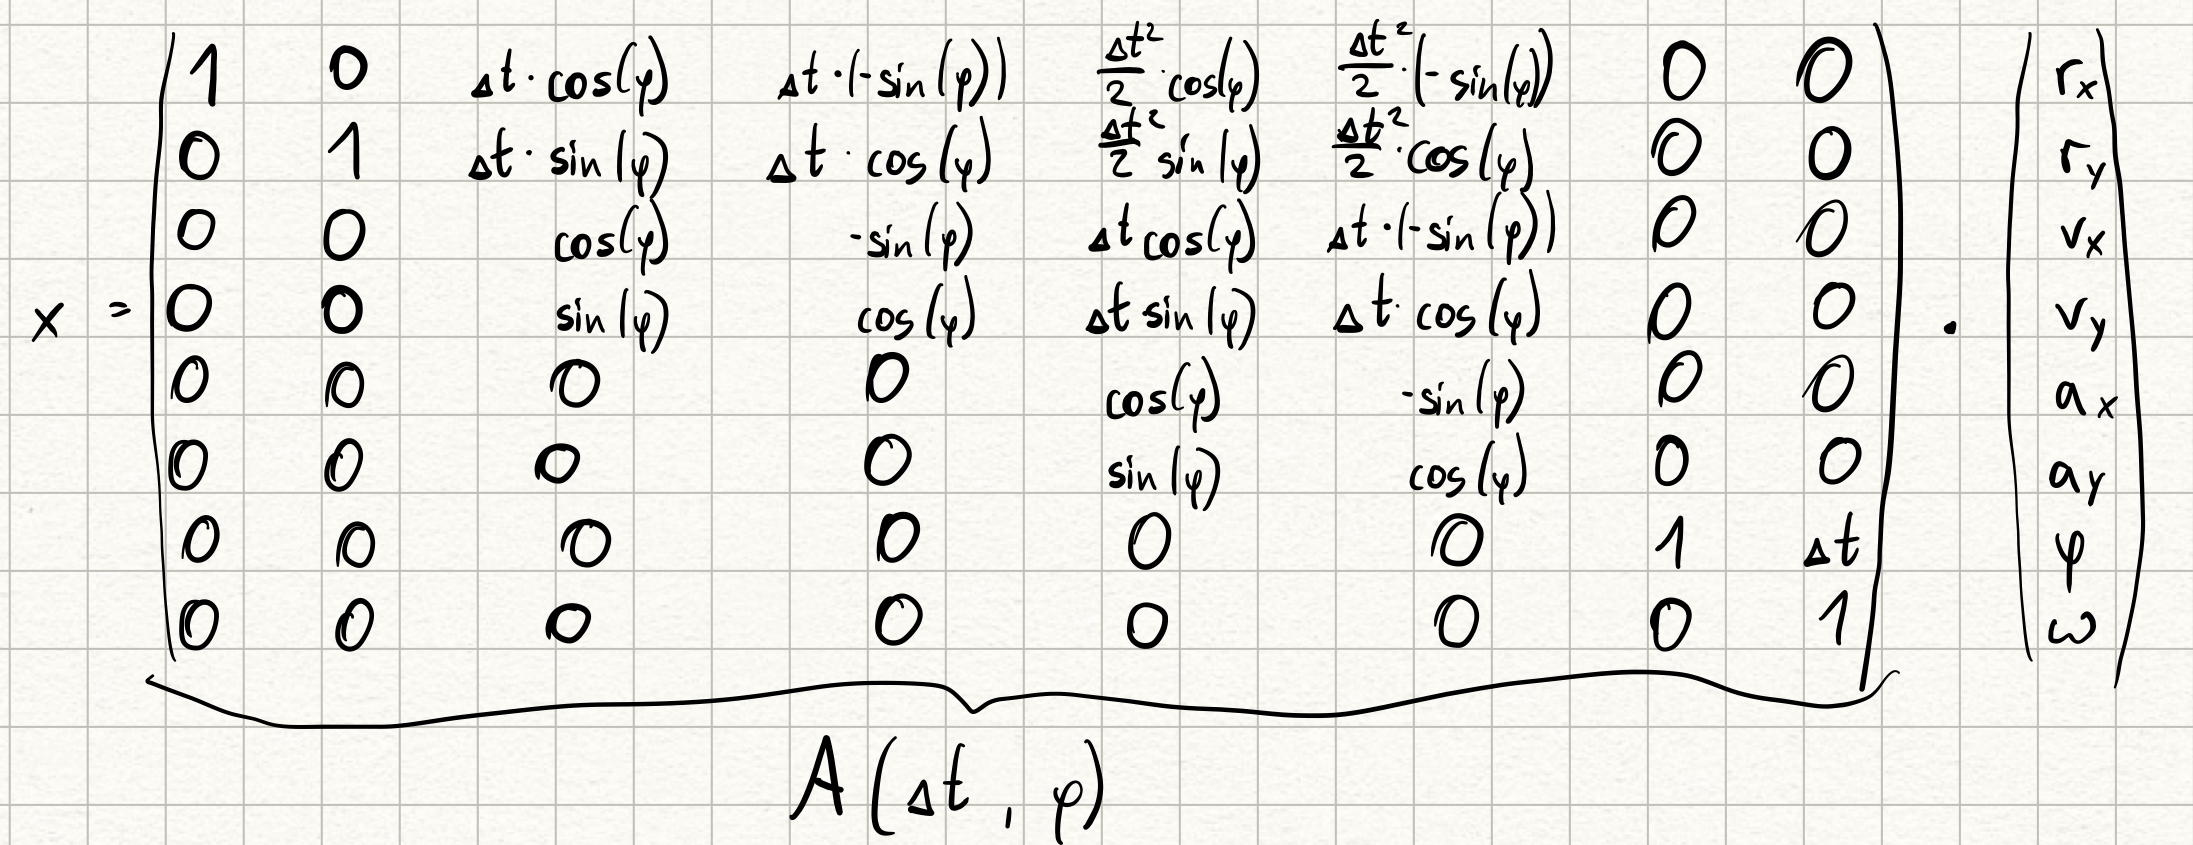 1 0 Δt·cos(φ) Δt·(-sin(φ)) Δt²/2·cos(φ) Δt²/2·(-sin(φ)) 0 0 r_x
0 1 Δt·sin(φ) Δt·cos(φ) Δt²/2 sin(φ) Δt²/2·cos(φ) 0 0 r_y
0 0 cos(φ) -sin(φ) Δt cos(φ) Δt·(-sin(φ)) 0 0 v_x
x = 0 0 sin(φ) cos(φ) Δt sin(φ) Δt·cos(φ) 0 0 · v_y
0 0 0 0 cos(φ) -sin(φ) 0 0 a_x
0 0 0 0 sin(φ) cos(φ) 0 0 a_y
0 0 0 0 0 0 1 Δt φ
0 0 0 0 0 0 0 1 ω
A(Δt, φ)